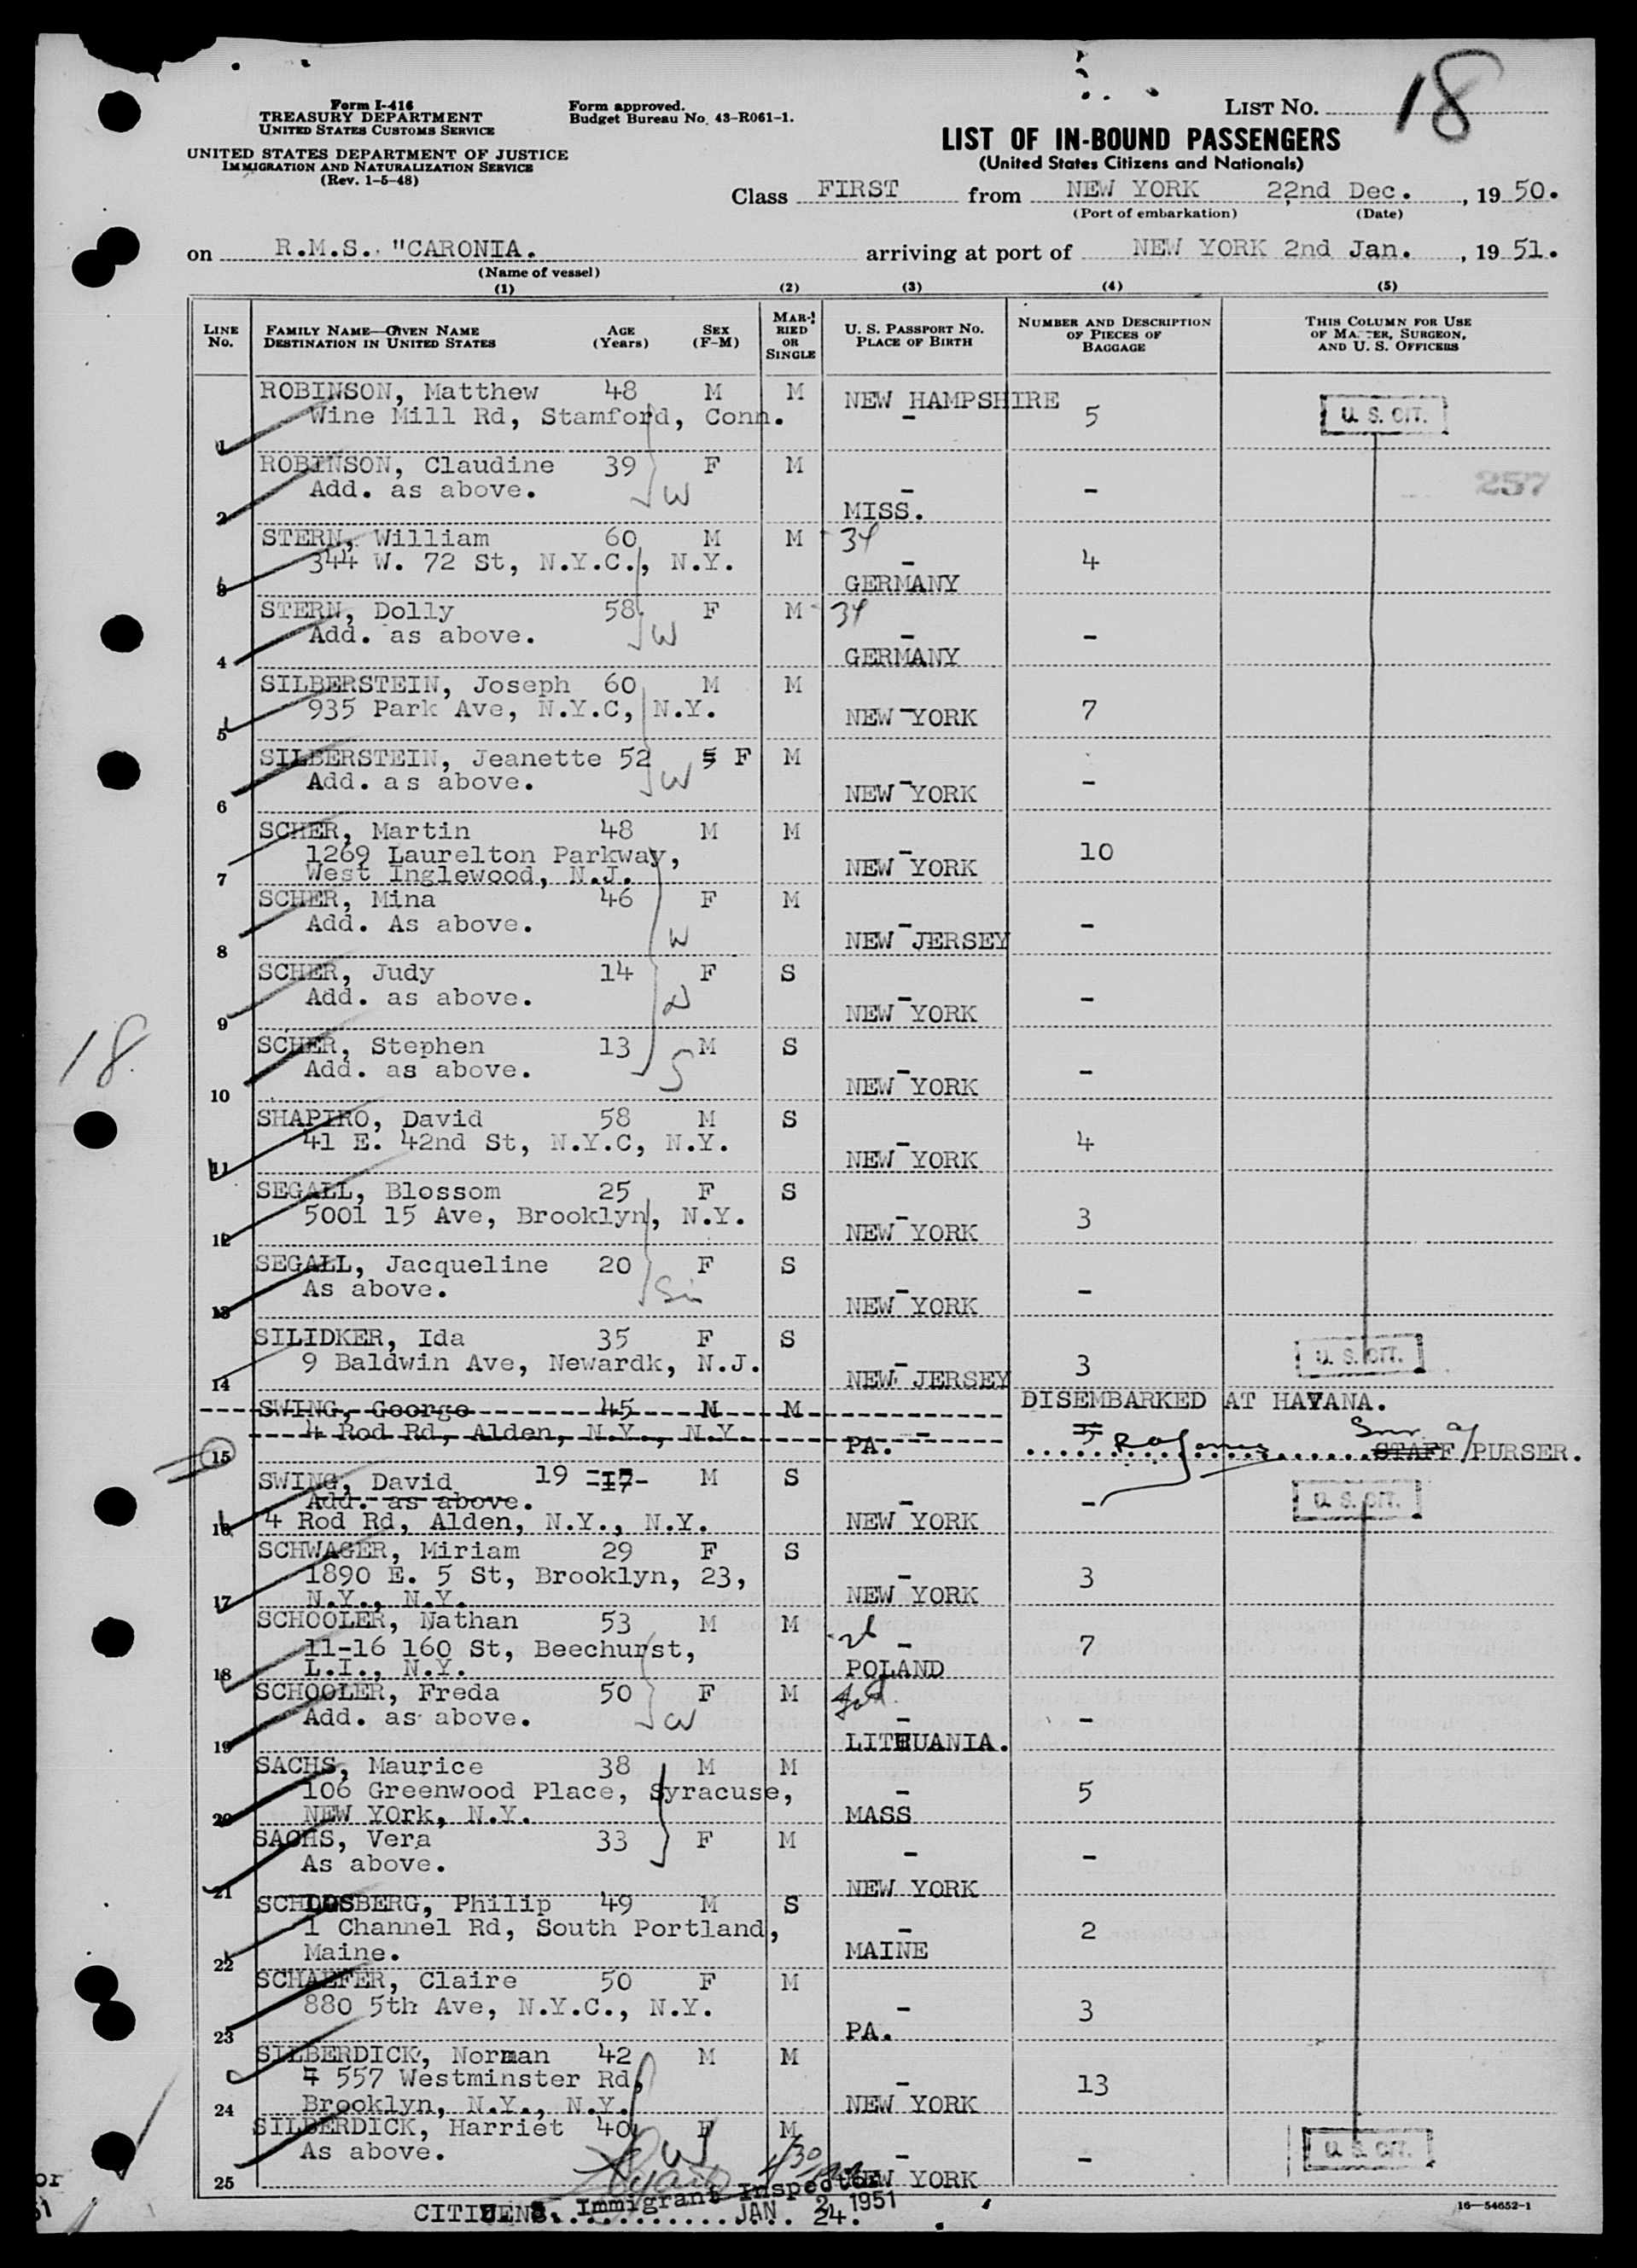 18
Form I-416
TREASURY DEPARTMENT
UNITED STATES CUSTOMS SERVICE
UNITED STATES DEPARTMENT OF JUSTICE
IMMIGRATION AND NATURALIZATION SERVICE
(Rev. 1-5-48)
Form approved.
Budget Bureau No. 43-R061-1.
LIST NO. 18
LIST OF IN-BOUND PASSENGERS
(United States Citizens and Nationals)
Class FIRST from NEW YORK 22nd Dec. , 19 50.
(Port of embarkation) (Date)
on R.M.S. "CARONIA. arriving at port of NEW YORK 2nd Jan. , 19 51.
(Name of vessel)
(1) (2) (3) (4) (5)
LINE NO. FAMILY NAME—GIVEN NAME DESTINATION IN UNITED STATES AGE (Years) SEX (F-M) MARRIED OR SINGLE U. S. PASSPORT NO. PLACE OF BIRTH NUMBER AND DESCRIPTION OF PIECES OF BAGGAGE THIS COLUMN FOR USE OF MASTER, SURGEON, AND U. S. OFFICERS
ROBINSON, Matthew 48 M M NEW HAMPSHIRE
Wine Mill Rd, Stamford, Conn. - 5 U. S. CIT.
1
ROBINSON, Claudine 39 F M
Add. as above. W - - 257
2 MISS.
STERN, William 60 M M 34
344 W. 72 St, N.Y.C., N.Y. - 4
3 GERMANY
STERN, Dolly 58 F M 34
Add. as above. W - -
4 GERMANY
SILBERSTEIN, Joseph 60 M M
935 Park Ave, N.Y.C, N.Y. - 7
5 NEW YORK
SILBERSTEIN, Jeanette 52 5 F M
Add. as above. W - -
6 NEW YORK
SCHER, Martin 48 M M
1269 Laurelton Parkway, - 10
7 West Inglewood, N.J. NEW YORK
SCHER, Mina 46 F M
Add. As above. W - -
8 NEW JERSEY
SCHER, Judy 14 F S
Add. as above. - -
9 NEW YORK
SCHER, Stephen 13 M S
Add. as above. S - -
10 NEW YORK
18
SHAPIRO, David 58 M S
41 E. 42nd St, N.Y.C, N.Y. - 4
11 NEW YORK
SEGALL, Blossom 25 F S
5001 15 Ave, Brooklyn, N.Y. - 3
12 NEW YORK
SEGALL, Jacqueline 20 F S
As above. Si - -
13 NEW YORK
SILIDKER, Ida 35 F S U. S. CIT.
9 Baldwin Ave, Newardk, N.J. - 3
14 NEW JERSEY
SWING, George 45 M M DISEMBARKED AT HAVANA.
4 Rod Rd, Alden, N.Y., N.Y. - 5
15 PA. STAFF/PURSER.
SWING, David 19 -17- M S
Add. as above. - - U. S. CIT.
16 4 Rod Rd, Alden, N.Y., N.Y. NEW YORK
SCHWAGER, Miriam 29 F S
1890 E. 5 St, Brooklyn, 23, - 3
17 N.Y., N.Y. NEW YORK
SCHOOLER, Nathan 53 M M
11-16 160 St, Beechurst, - 7
18 L.I., N.Y. POLAND
SCHOOLER, Freda 50 F M
Add. as above. W - -
19 LITHUANIA.
SACHS, Maurice 38 M M
106 Greenwood Place, Syracuse, - 5
20 NEW YOrk, N.Y. MASS
SACHS, Vera 33 F M
As above. - -
21 NEW YORK
SCHLOSBERG, Philip 49 M S
1 Channel Rd, South Portland, - 2
22 Maine. MAINE
SCHAEFER, Claire 50 F M
880 5th Ave, N.Y.C., N.Y. - 3
23 PA.
SILBERDICK, Norman 42 M M
557 Westminster Rd, - 13
24 Brooklyn, N.Y., N.Y. NEW YORK
SILBERDICK, Harriet 40 F M
As above. W - - U. S. CIT.
25 NEW YORK
Immigrant Inspector
CITIZENS................ 24.
JAN 2 1951
16—54652-1